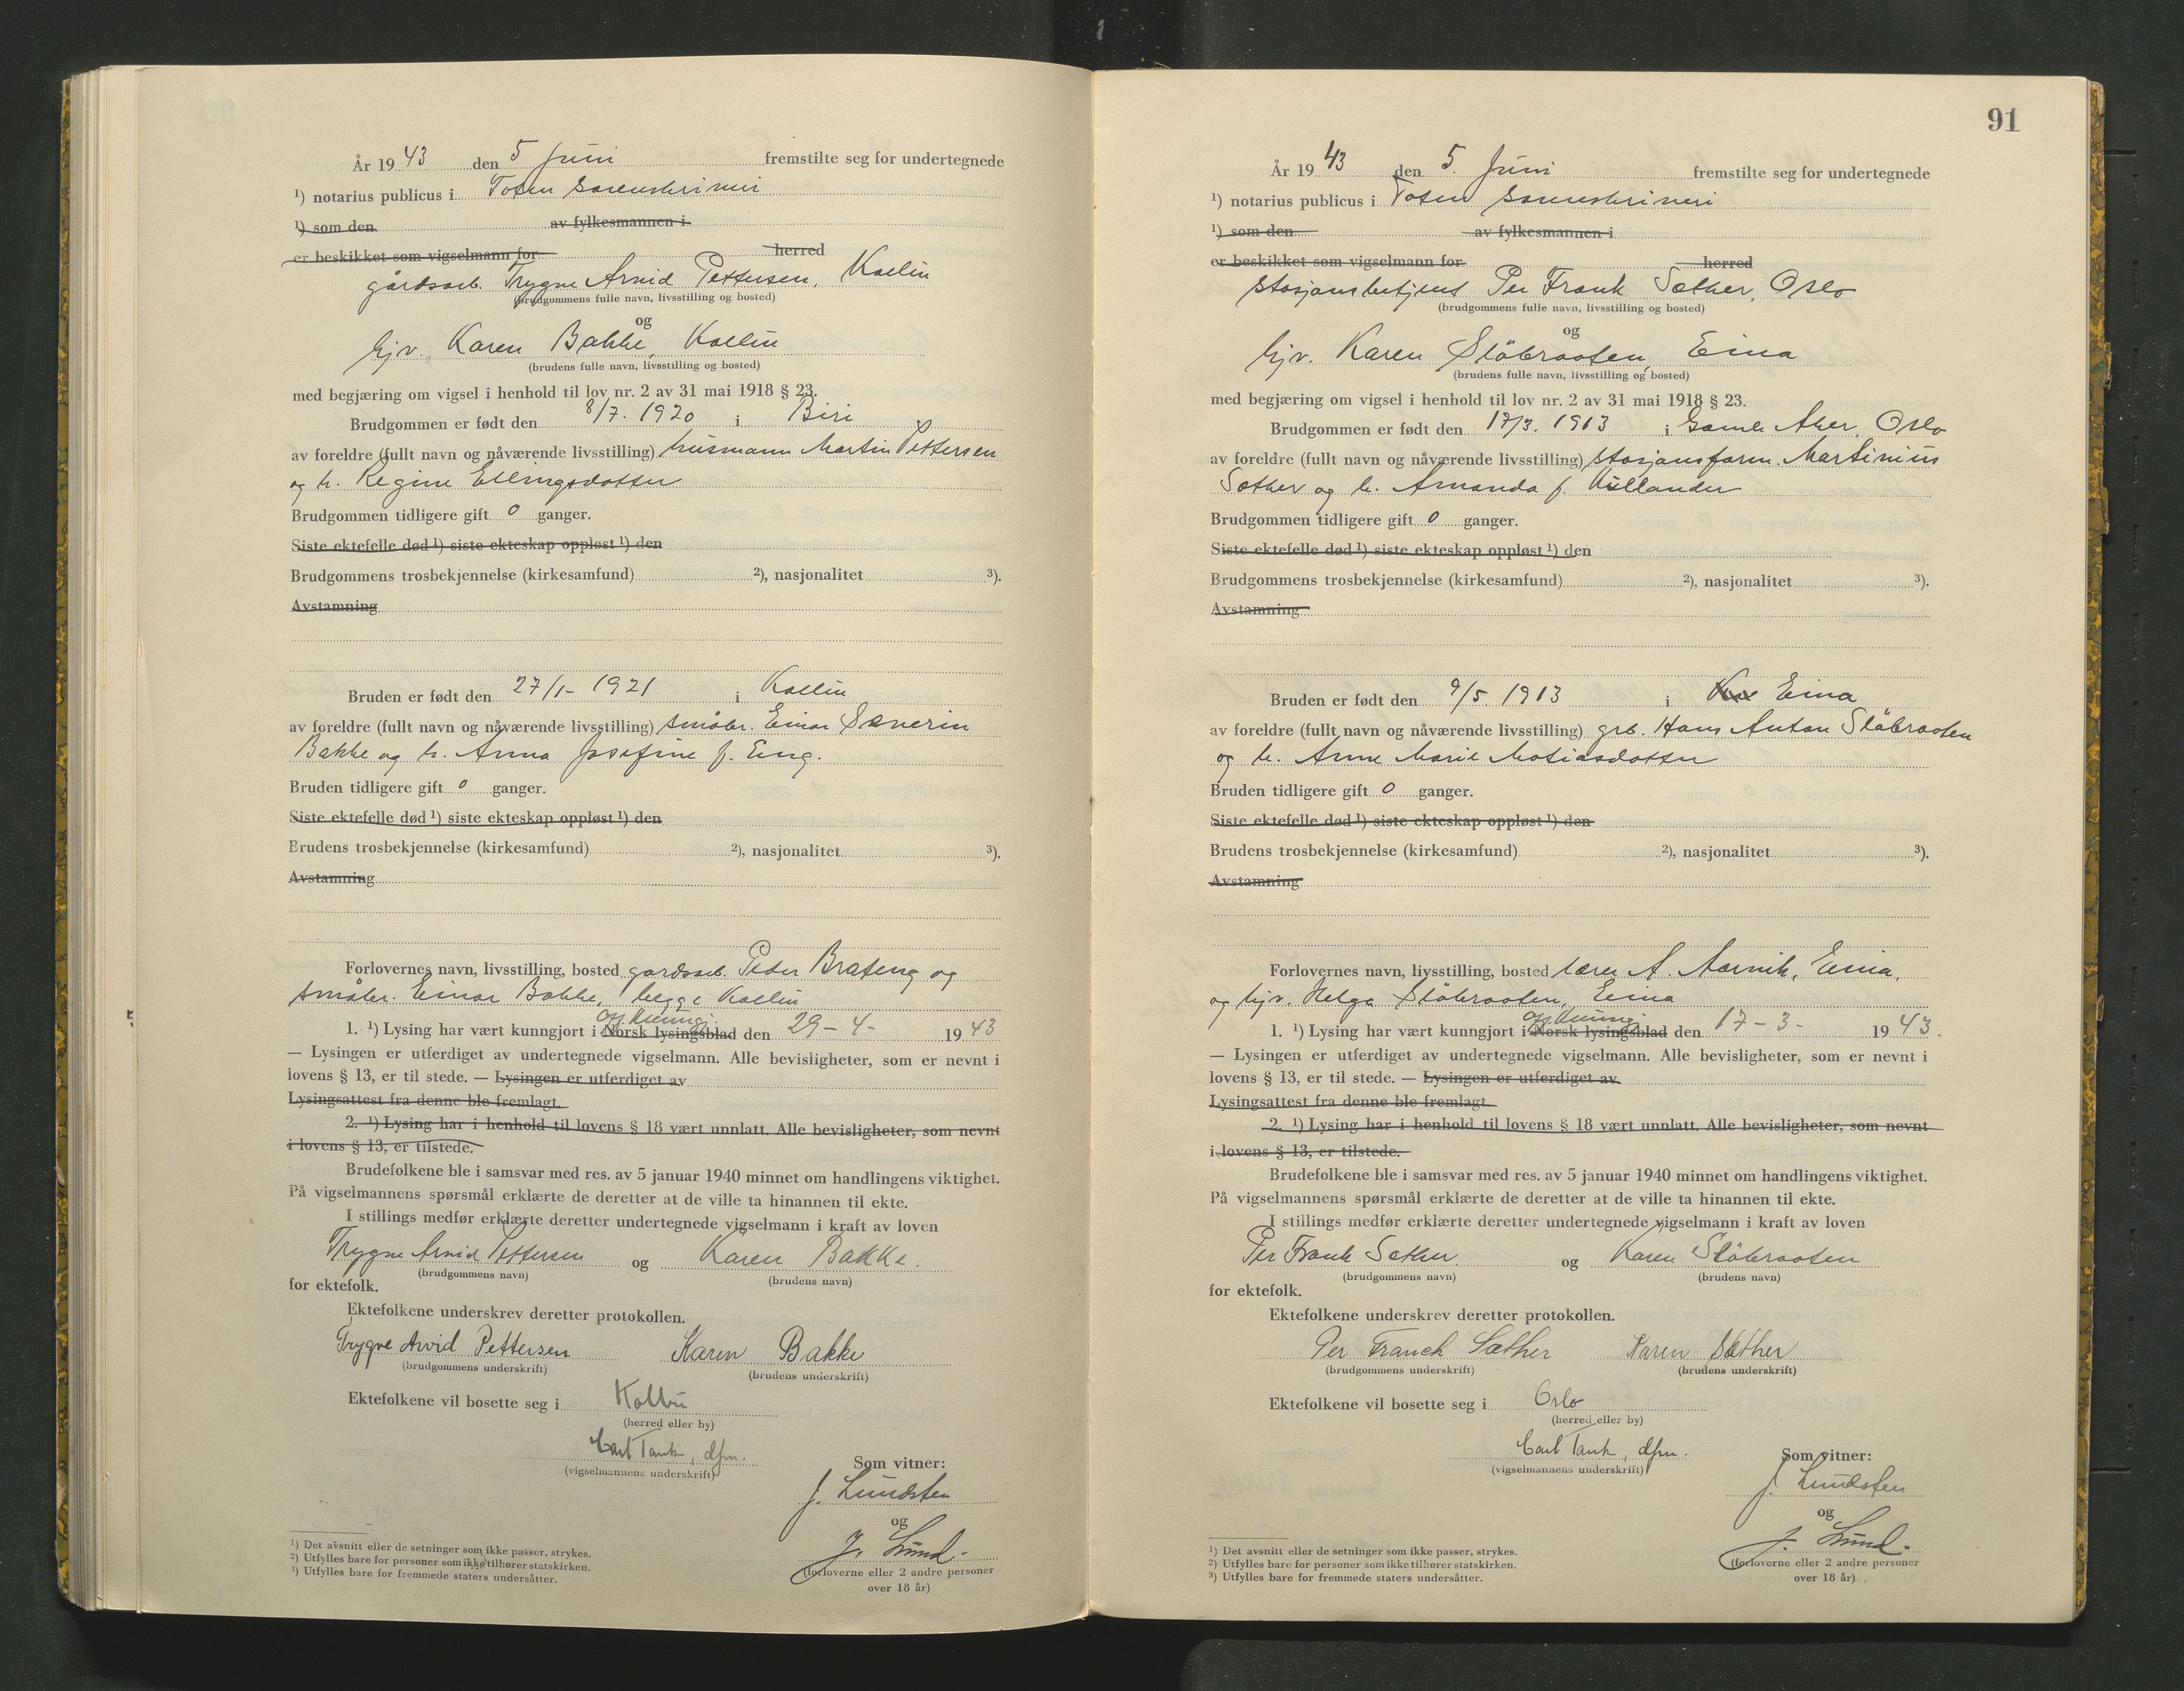 År 1943 den 5 Juni fremstilte seg for undertegnede
¹) notarius publicus i Toten sorenskriveri
¹) som den av fylkesmannen i
er beskikket som vigselmann for herred
gårdsarb. Trygve Arvid Pettersen, Kolbu
(brudgommens fulle navn, livsstilling og bosted)
og
hjv. Karen Bakke, Kolbu
(brudens fulle navn, livsstilling og bosted)
med begjæring om vigsel i henhold til lov nr. 2 av 31 mai 1918 § 23.
Brudgommen er født den 8/7. 1920 i Biri
av foreldre (fullt navn og nåværende livsstilling) husmann Martin Pettersen
og h. Regine Ellingsdotter
Brudgommen tidligere gift 0 ganger.
Siste ektefelle død ¹) siste ekteskap oppløst ¹) den
Brudgommens trosbekjennelse (kirkesamfund) ²), nasjonalitet ³).
Avstamning
Bruden er født den 27/1- 1921 i Kolbu
av foreldre (fullt navn og nåværende livsstilling) småbr. Einar Severin
Bakke og h. Anna Josefine f. Eng.
Bruden tidligere gift 0 ganger.
Siste ektefelle død ¹) siste ekteskap oppløst ¹) den
Brudens trosbekjennelse (kirkesamfund) ²), nasjonalitet ³).
Avstamning
Forlovernes navn, livsstilling, bosted gardsarb. Peder Brateng og
småbr. Einar Bakke, begge Kolbu
1. ¹) Lysing har vært kunngjort i Norsk lysingsblad den 29-4- 1943
— Lysingen er utferdiget av undertegnede vigselmann. Alle bevisligheter, som er nevnt i
lovens § 13, er til stede. — Lysingen er utferdiget av
Lysingsattest fra denne ble fremlagt.
2. ¹) Lysing har i henhold til lovens § 18 vært unnlatt. Alle bevisligheter, som nevnt
i lovens § 13, er tilstede.
Brudefolkene ble i samsvar med res. av 5 januar 1940 minnet om handlingens viktighet.
På vigselmannens spørsmål erklærte de deretter at de ville ta hinannen til ekte.
I stillings medfør erklærte deretter undertegnede vigselmann i kraft av loven
Trygve Arvid Pettersen og Karen Bakke.
(brudgommens navn) (brudens navn)
for ektefolk.
Ektefolkene underskrev deretter protokollen.
Trygve Arvid Pettersen Karen Bakke
(brudgommens underskrift) (brudens underskrift)
Ektefolkene vil bosette seg i Kolbu
(herred eller by)
Carl Tank, dfm.
(vigselmannens underskrift)
Som vitner:
J. Lundsten
og
J. Lund.
(forloverne eller 2 andre personer
over 18 år)
¹) Det avsnitt eller de setninger som ikke passer, strykes.
²) Utfylles bare for personer som ikke tilhører statskirken.
³) Utfylles bare for fremmede staters undersåtter.
91
År 1943 den 5. Juni fremstilte seg for undertegnede
¹) notarius publicus i Toten sorenskriveri
¹) som den av fylkesmannen i
er beskikket som vigselmann for herred
stasjonsbetjent Per Frank Sæther, Oslo
(brudgommens fulle navn, livsstilling og bosted)
og
hjv. Karen Slåbraaten, Eina
(brudens fulle navn, livsstilling og bosted)
med begjæring om vigsel i henhold til lov nr. 2 av 31 mai 1918 § 23.
Brudgommen er født den 17/3. 1913 i Gamle Aker, Oslo
av foreldre (fullt navn og nåværende livsstilling) stasjonsform. Martinius
Sæther og h. Amanda f. Kullander
Brudgommen tidligere gift 0 ganger.
Siste ektefelle død ¹) siste ekteskap oppløst ¹) den
Brudgommens trosbekjennelse (kirkesamfund) ²), nasjonalitet ³).
Avstamning
Bruden er født den 9/5. 1913 i Eina
av foreldre (fullt navn og nåværende livsstilling) grb. Hans Anton Slåbraaten
og h. Anne Marie Matiasdotter
Bruden tidligere gift 0 ganger.
Siste ektefelle død ¹) siste ekteskap oppløst ¹) den
Brudens trosbekjennelse (kirkesamfund) ²), nasjonalitet ³).
Avstamning
Forlovernes navn, livsstilling, bosted lærer A. Aarnik, Eina,
og hjv. Helga Slåbraaten, Eina
1. ¹) Lysing har vært kunngjort i Norsk lysingsblad den 17-3- 1943.
— Lysingen er utferdiget av undertegnede vigselmann. Alle bevisligheter, som er nevnt i
lovens § 13, er til stede. — Lysingen er utferdiget av
Lysingsattest fra denne ble fremlagt.
2. ¹) Lysing har i henhold til lovens § 18 vært unnlatt. Alle bevisligheter, som nevnt
i lovens § 13, er tilstede.
Brudefolkene ble i samsvar med res. av 5 januar 1940 minnet om handlingens viktighet.
På vigselmannens spørsmål erklærte de deretter at de ville ta hinannen til ekte.
I stillings medfør erklærte deretter undertegnede vigselmann i kraft av loven
Per Frank Sæther. og Karen Slåbraaten
(brudgommens navn) (brudens navn)
for ektefolk.
Ektefolkene underskrev deretter protokollen.
Per Franck Sæther Karen Sæther
(brudgommens underskrift) (brudens underskrift)
Ektefolkene vil bosette seg i Oslo
(herred eller by)
Carl Tank, dfm.
(vigselmannens underskrift)
Som vitner:
J. Lundsten
og
J. Lund.
(forloverne eller 2 andre personer
over 18 år)
¹) Det avsnitt eller de setninger som ikke passer, strykes.
²) Utfylles bare for personer som ikke tilhører statskirken.
³) Utfylles bare for fremmede staters undersåtter.